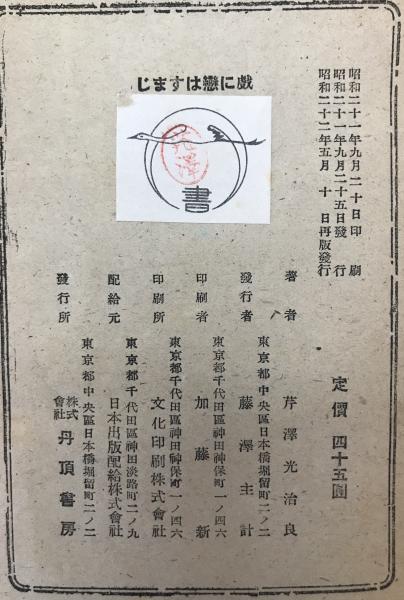 戯に戀はすまじ
昭和二十一年九月二十日印刷
昭和二十一年九月二十五日發行
昭和二十二年五月十日再版發行
芹澤
書
定價 四十五圓
著者 芹澤光治良
東京都中央區日本橋堀留町二ノ二
發行者 藤澤主計
東京都千代田區神田神保町一ノ四六
印刷者 加藤新
東京都千代田區神田神保町一ノ四六
印刷所 文化印刷株式會社
東京都千代田區神田淡路町二ノ九
配給元 日本出版配給株式會社
東京都中央區日本橋堀留町二ノ二
發行所 株式會社 丹頂書房